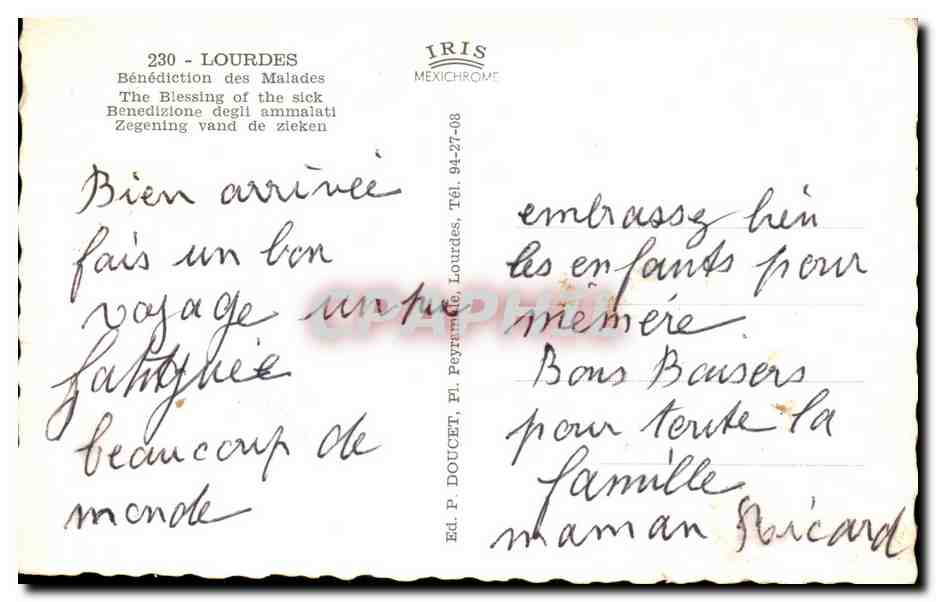 230 - LOURDES
Bénédiction des Malades
The Blessing of the sick
Benedizione degli ammalati
Zegening vand de zieken
IRIS
MEXICHROME
Ed. P. DOUCET, Pl. Peyramale, Lourdes, Tél. 94-27-08
CPAPHIL
Bien arrivée
fais un bon
voyage un peu
fatiguée
beaucoup de
monde
embrassez bien
les enfants pour
mémére
Bons Baisers
pour toute la
famille
maman Ricard